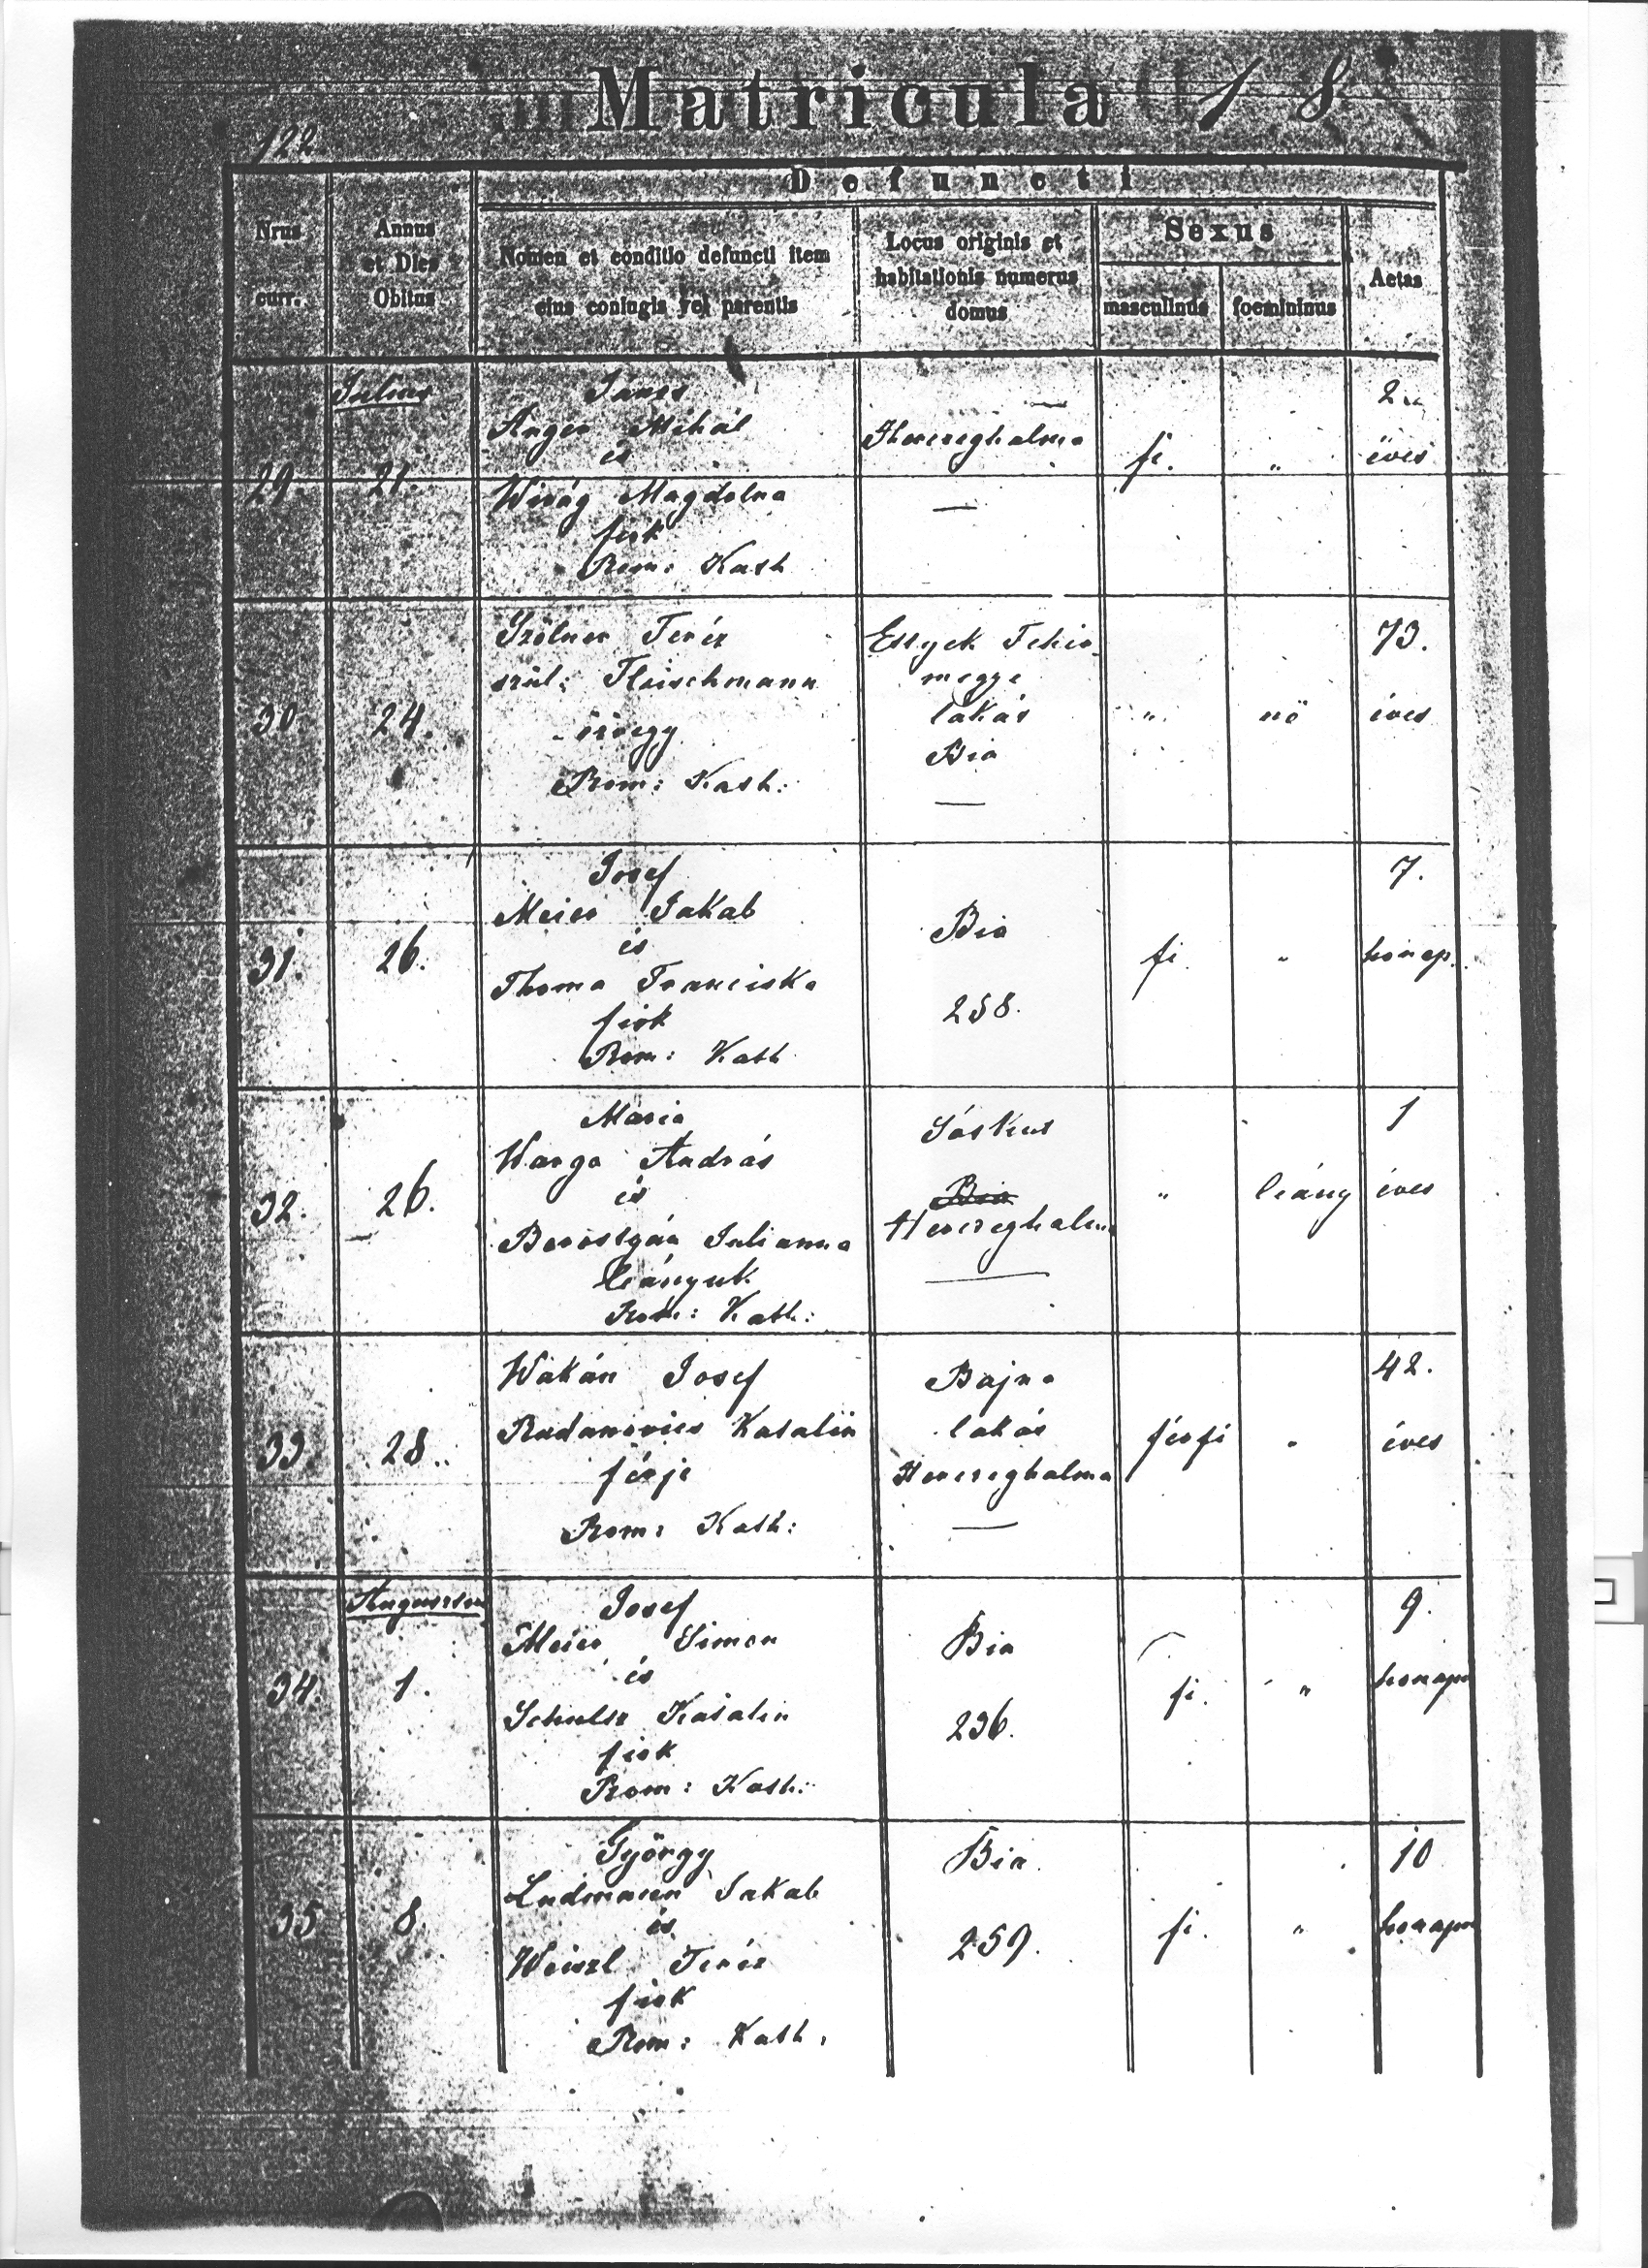 Matricula 1 8
122.
Defuncti
Nrus curr.
Annus et Dies Obitus
Nomen et conditio defuncti item eius coniugis vel parentis
Locus originis et habitationis numerus domus
Sexus
masculinus
foemininus
Aetas
Julius
29. 21.
János
Unger Mihál
és
Virág Magdolna
fiok
Rom: Kath
Herczeghalma
—
fi.
"
2
éves
30 24.
Szólner Teréz
szül: Fleischmann
özvegy
Rom: Kath:
Etyek Fehér
megye
lakás
Bia
—
"
nö
73.
éves
31. 26.
Josef
Meier Jakab
és
Thoma Franciska
fiok
Rom: Kath
Bia
258.
fi.
"
7.
honap.
32. 26.
Maria
Warga András
és
Julianna
leányuk
Rom: Kath:
Sóskut
Bia
Herczeghalma
—
"
leány
1
éves
33. 28.
Wakán Josef
Radanovics Katalin
férje
Rom: Kath:
Bajna
lakás
Herczeghalma
—
férfi
"
42.
éves
Augusztus
34. 1.
Josef
Meier Simon
és
Schulsz Katalin
fiok
Rom: Kath:
Bia
236.
fi.
"
9.
honapo
35 8.
György
Ladmann Jakab
és
Weiszl Teréz
fiok
Rom: Kath.
Bia
259.
fi.
"
10
honapo